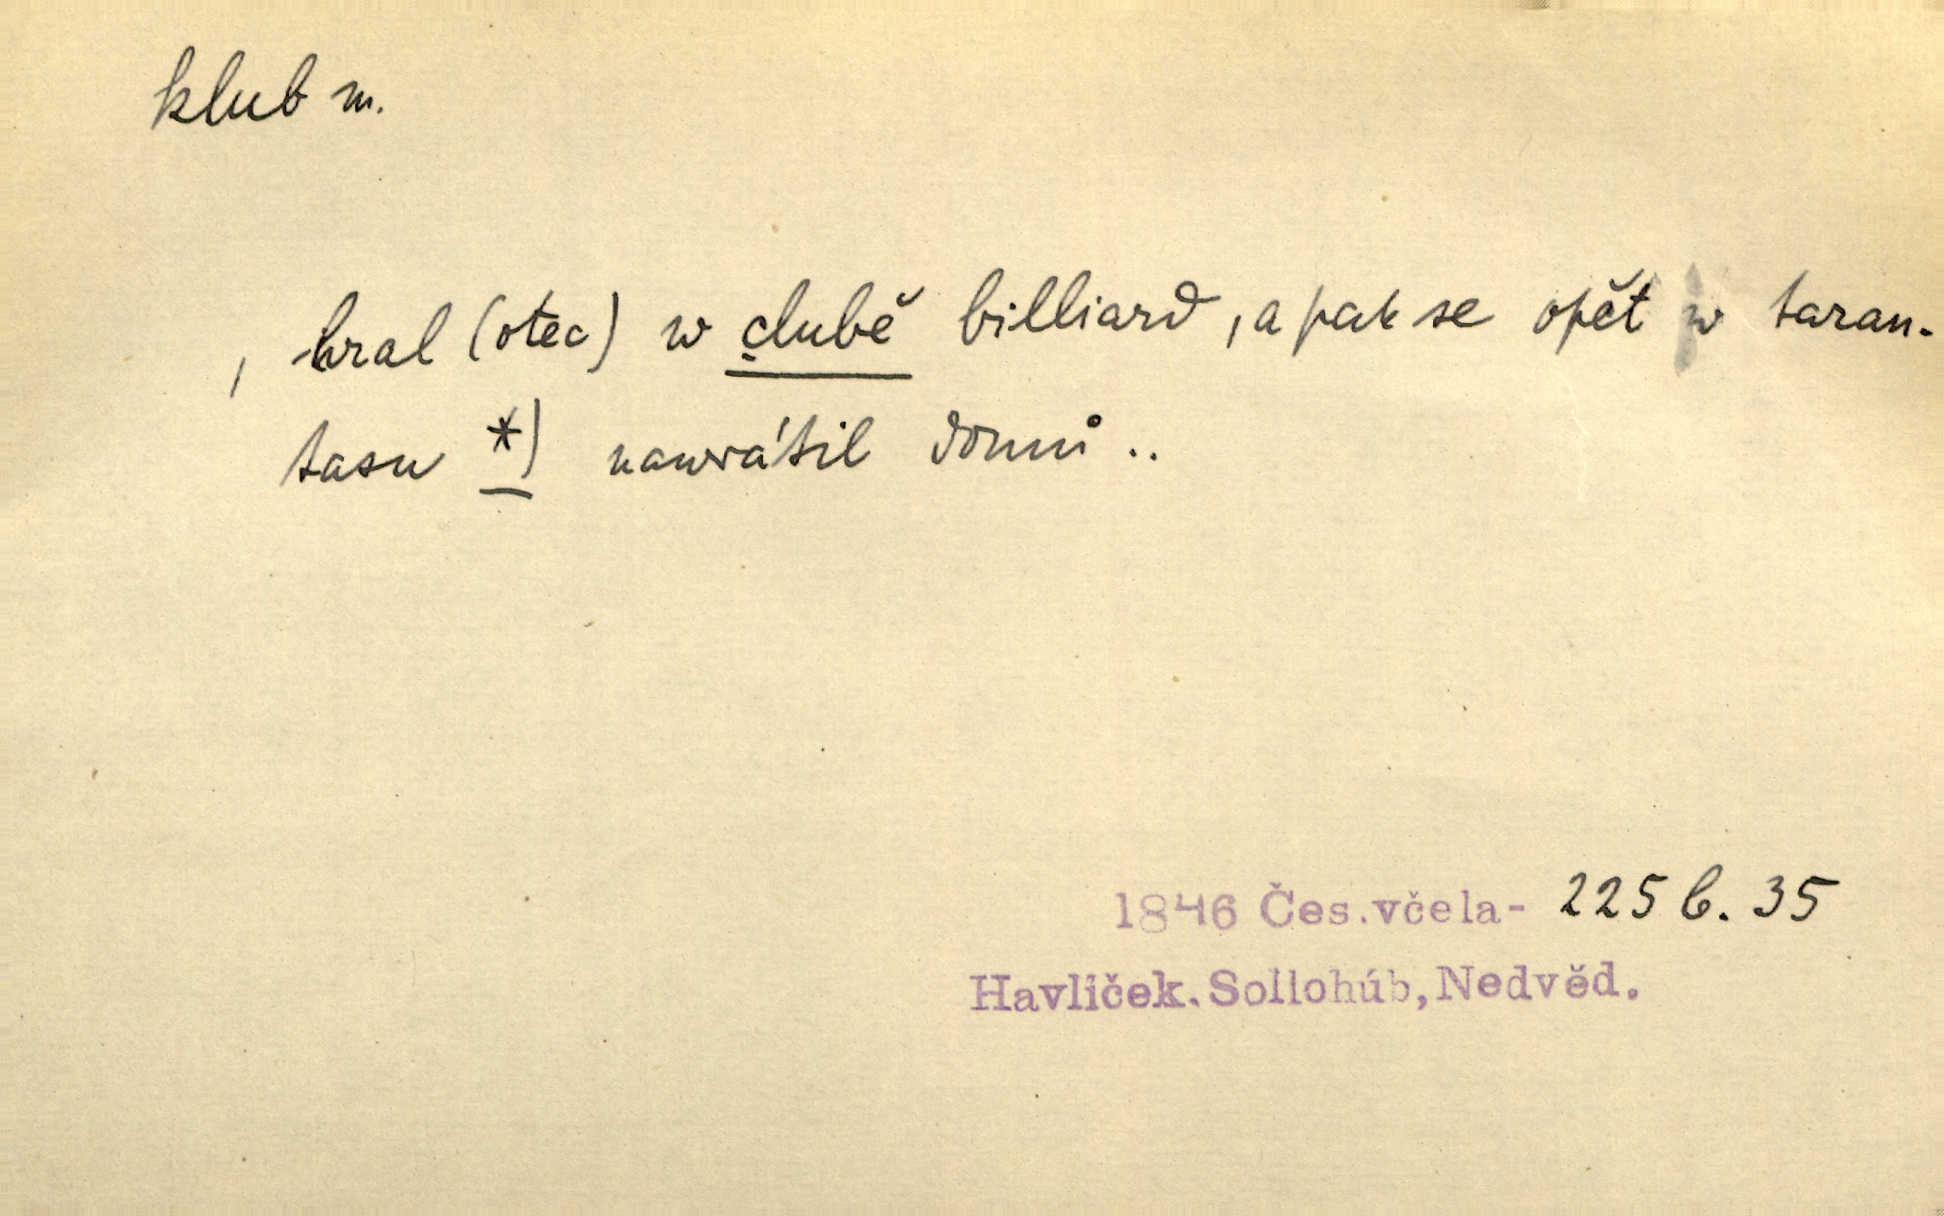 klub m.
, hral (otec) w clubě billiard, a pak se opět w taran-
tasu *) nawrátil domů ..
1846 Čes.včela- 225 b. 35
Havlíček. Sollohúb, Nedvěd.